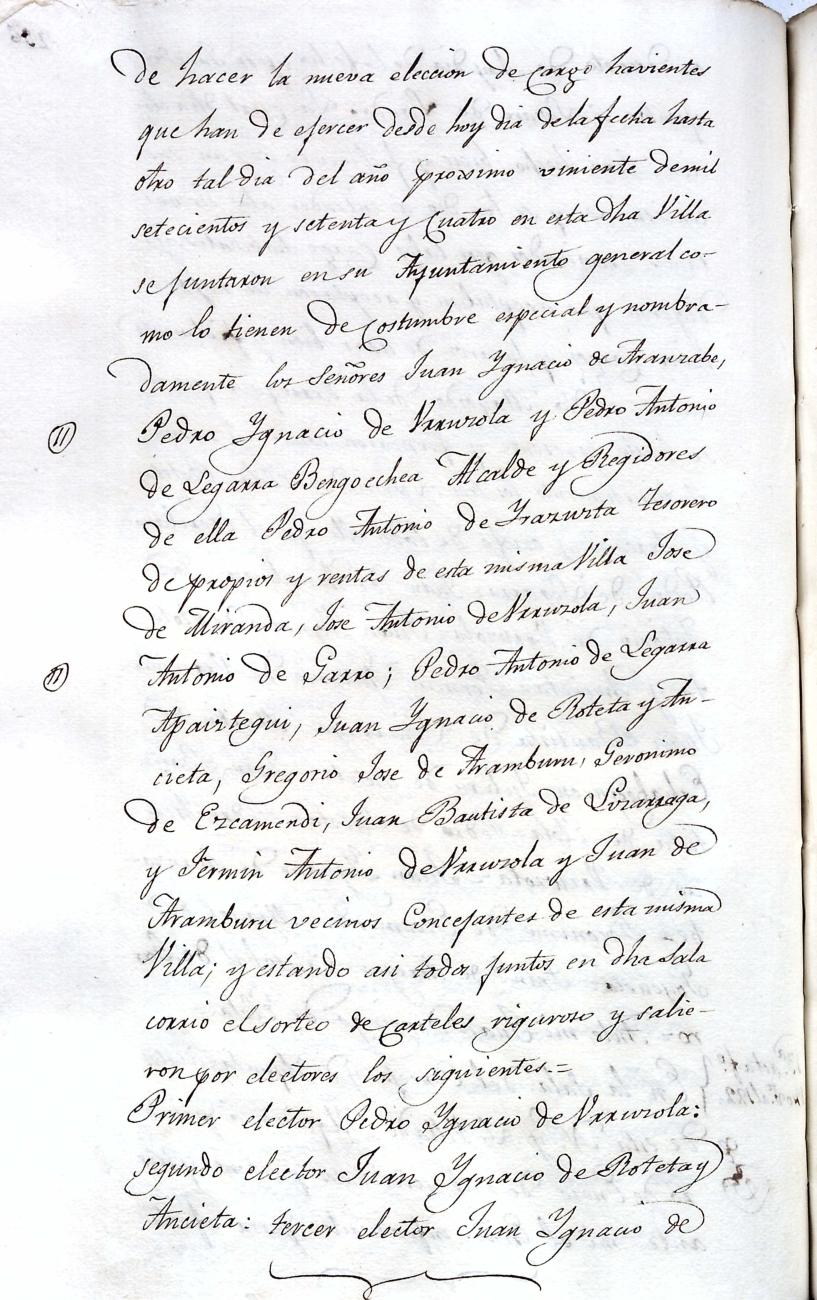 de hacer la nueva eleccion de cargo havientes
que han de ejercer desde hoy dia de la fecha hasta
otro tal dia del año proximo viniente de mil
setecientos y setenta y Cuatro en esta dha Villa
se juntaron en su Ayuntamiento general co-
mo lo tienen de Costumbre especial y nombra-
damente los Señores Juan Ygnacio de Aranzabe,
Pedro Ygnacio de Urruzola y Pedro Antonio
de Legarra Bengoechea Alcalde y Regidores
de ella Pedro Antonio de Yrazuzta Tesorero
de propios y rentas de esta misma Villa Jose
de Miranda, Jose Antonio de Urruzola, Juan
Antonio de Garro; Pedro Antonio de Legarra
Apaiztegui, Juan Ygnacio de Roteta y An-
cieta, Gregorio Jose de Aramburu, Geronimo
de Ezcamendi, Juan Bautista de Lizarraga,
y Fermin Antonio de Urruzola y Juan de
Aramburu vecinos Concejantes de esta misma
Villa; y estando asi todos juntos en dha Sala
corrio el sorteo de carteles riguroso y salie-
ron por electores los siguientes.=
Primer elector Pedro Ygnacio de Urruzola:
segundo elector Juan Ygnacio de Roteta y
Ancieta: tercer elector Juan Ygnacio de